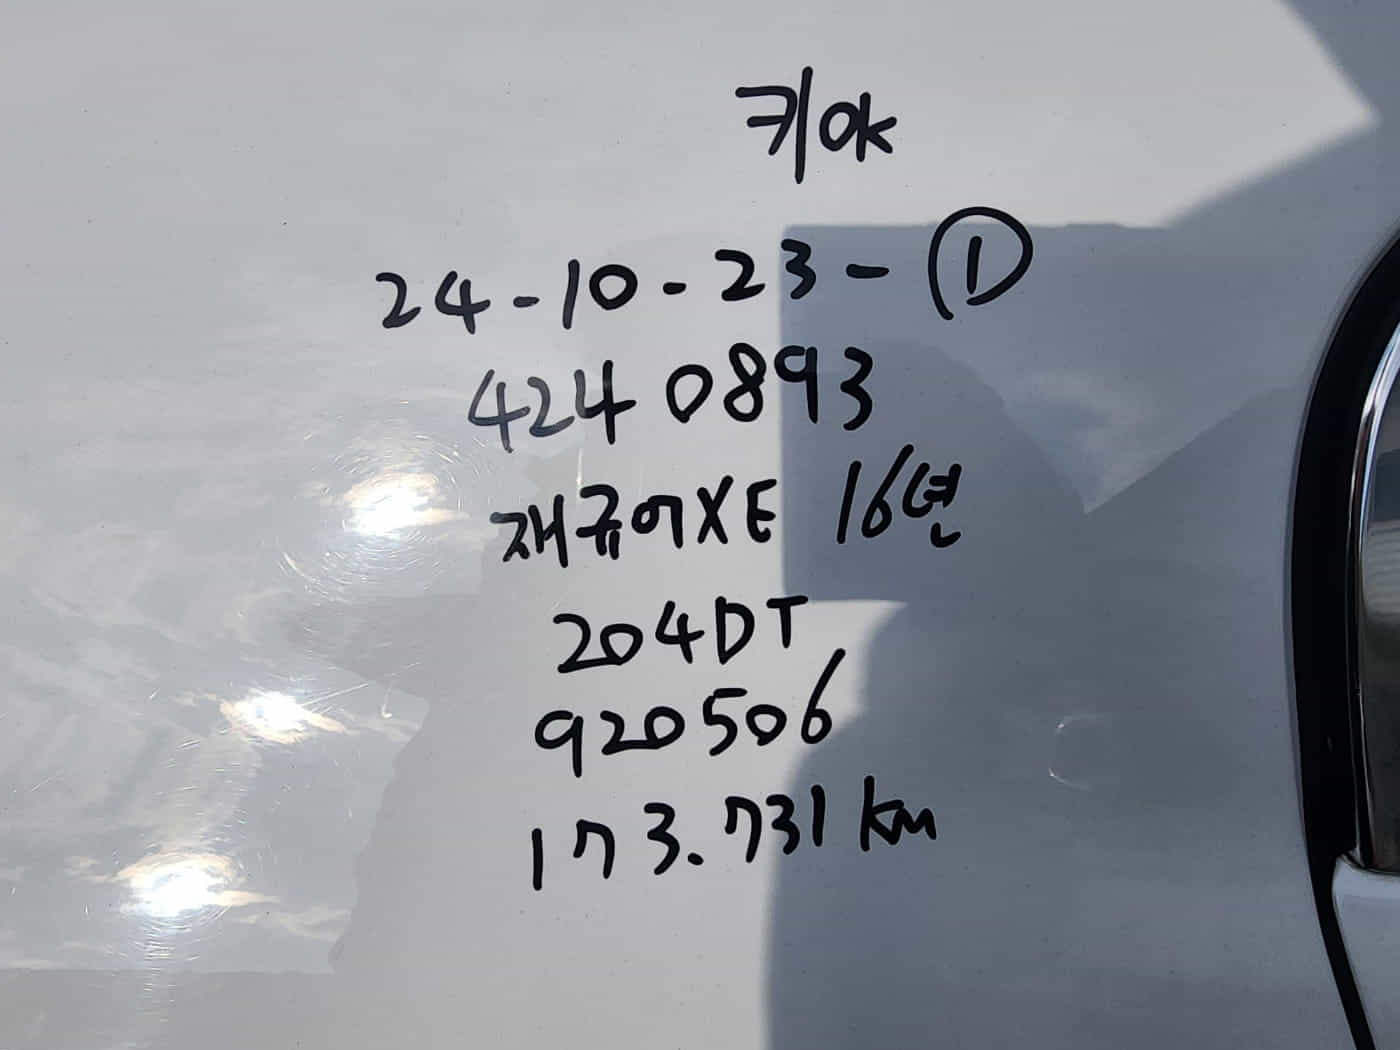 키ok
24-10-23-①
424 0893
재규어XE 16년
204DT
920506
173.731km